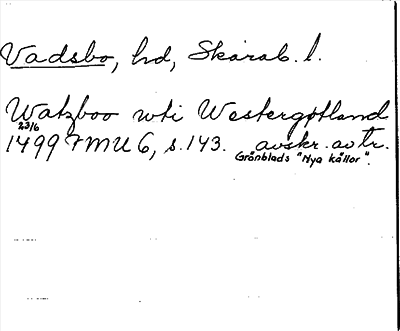 Vadsbo, hd, Skarab. l.
Watzboo wti Westergøtland
23/6
1499 FMU 6, s. 143. avskr. av tr.
Grönblads "Nya källor".